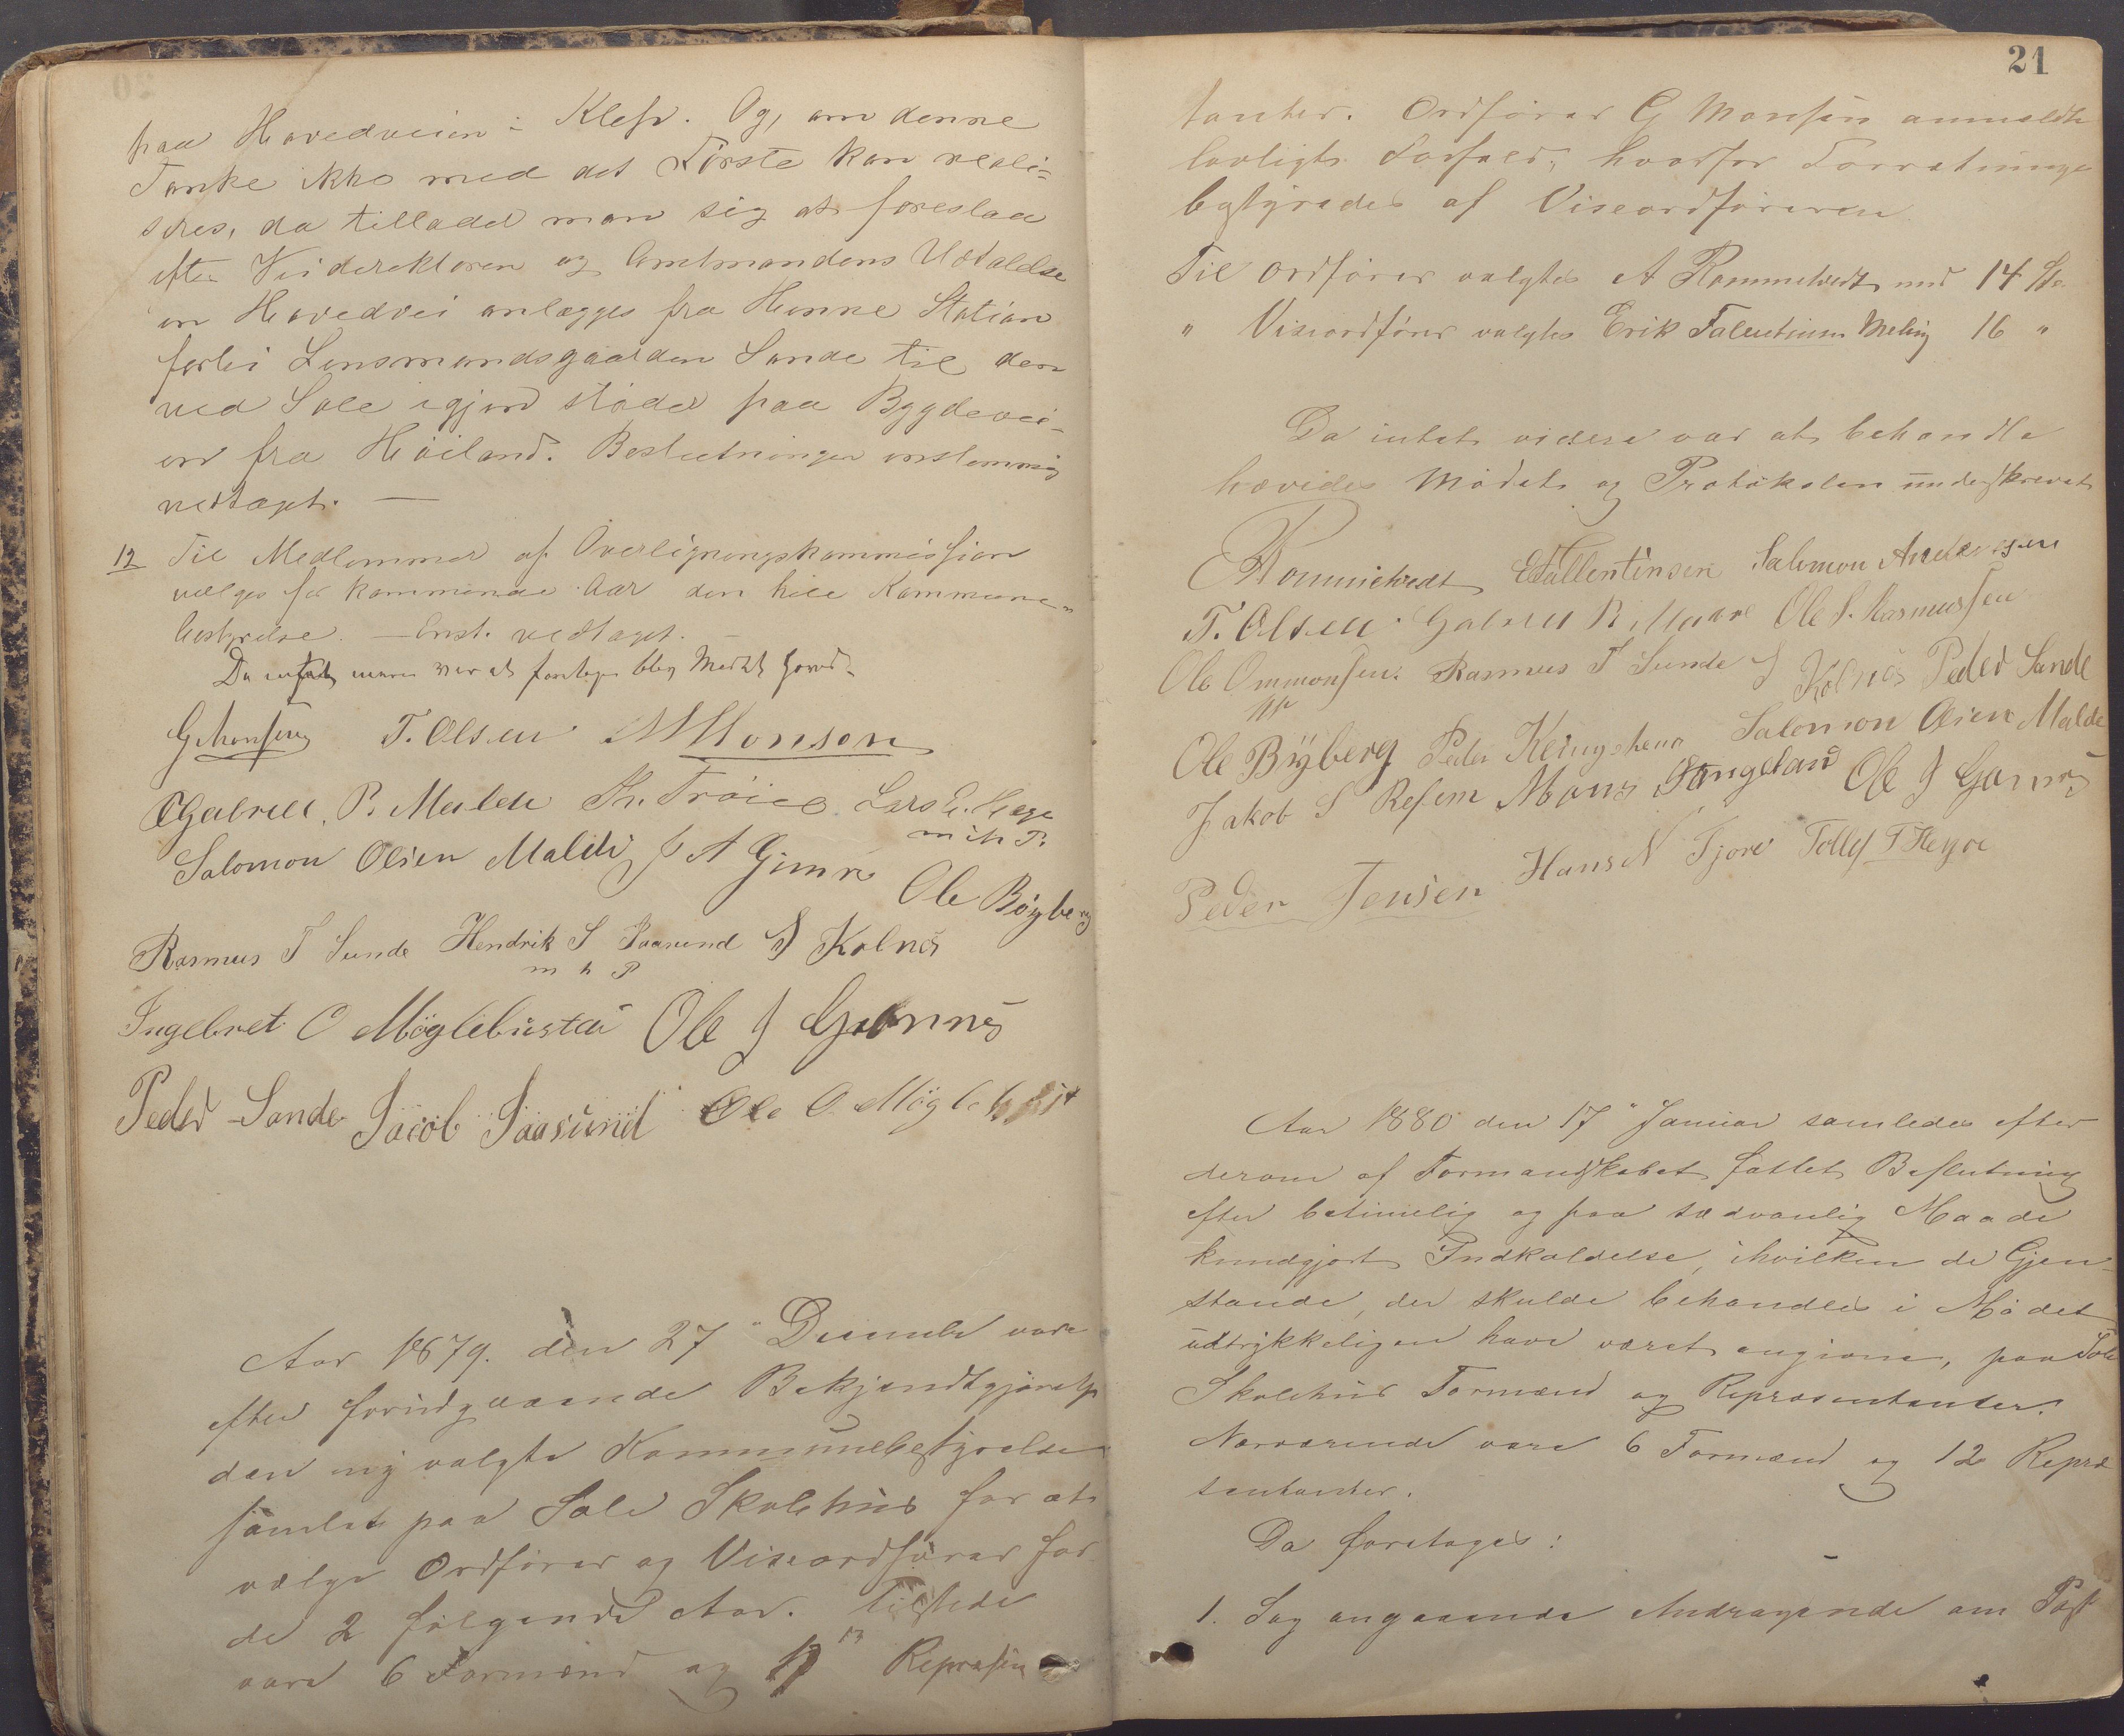 paa Hovedveien i Klep. Og, om denne
Tanke ikke med det Første kan reali-
seres, da tillader man sig at foreslaa
efter Veidirektøren og Amtmandens Udtalelse
en Hovedvei anlægges fra Hinne Station
forbi Lensmandsgaarden Sande til den
ved Sole igjen støder paa Bygdevei-
en fra Høiland. Beslutningen enstemmig
vedtaget. —
12 Til Medlemmer af Overligningskommission
vælges for kommende Aar den hele Kommune-
bestyrelse. — Enst. vedtaget. —
Da intet mere var at foretage blev Mødet hævet.
G Monsen T. Olsen M Monson
Gabriel P. Malde Th. Trøier Lars E. Hege
m ih P.
Salomon Olsen Malde J A Gimre
Ole Bøyberg
Rasmus T Sunde Hendrik S Paasund S Kolnes
m h P
Ingebret O Møglebustai Ole J Grannes
Peder Sande Jacob Jaasund Ole O Møglebust
Aar 1879. den 27 December vare
efter forudgaaende Bekjendtgjørelse
den ny valgte Kommunebestyrelse
samlet paa Sole Skolehus for at
vælge Ordfører og Viseordfører for
de 2 følgende Aar. Tilstede
vare 6 Formænd og 13 Repræsen
21
tanter. Ordfører G Monsen anmeldte
lovligt Forfald, hvorfor Forretninge
bestyredes af Viseordføreren
Til Ordfører valgtes A Rommetvedt med 14 St.
" Viseordfører valgtes Erik Falentinsen Meling 16 "
Da intet videre var at behandle
hævedes Mødet og Protokolen underskrevet
Rommetvedt E Fallentinsen Salomon Andersen
T. Olsen Gabriel P. Malde Ole S. Rasmussen
Ole Ommonsen Rasmus T Sunde S Kolnes Peder Sande
Ole Byberg Peder Salomon Olsen Malde
Jakob S Refem Mons Stangeland Ole J Grannes
Peder Jensen Hans N Fjore Tollef T Heyre
Aar 1880 den 17 Januar samledes efter
derom af Formandskabet fattet Beslutning
efter betimelig og paa sædvanlig Maade
kundgjort Indkaldelse, i hvilken de Gjen-
stande, der skulde behandles i Mødet
udtrykkeligen have været angivne, paa Sole
Skolehus Formænd og Repræsentanter.
Nærværende vare 6 Formænd og 12 Repræ
sentanter.
Da foretoges:
1. Sag angaaende Andragende om Post